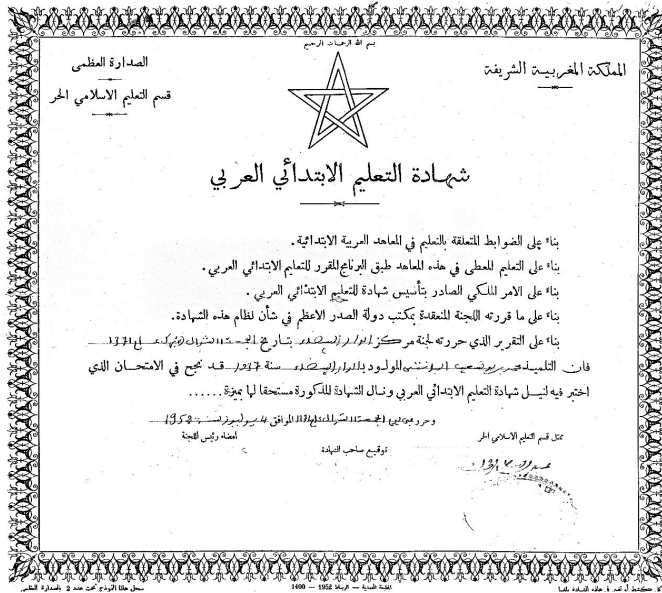 بسم الله الرحمان الرحيم
المملكة المغربية الشريفة
الصدارة العظمى
قسم التعليم الاسلامي الحر
شهادة التعليم الابتدائي العربي
بناءً على الضوابط المتعلقة بالتعليم في المعاهد العربية الابتدائية .
بناءً على التعليم المعطى في هذه المعاهد طبق البرنامج المقرر للتعليم الابتدائي العربي .
بناءً على الامر الملكي الصادر بتأسيس شهادة للتعليم الابتدائي العربي .
بناءً على ما قررته اللجنة المنعقدة بمكتب دولة الصدر الاعظم في شأن نظام هذه الشهادة .
بناءً على التقرير الذي حررته لجنة مركز الدار البيضاء بتاريخ 1371
فان التلميذ المولود بالدار البيضاء سنة 1937 قد نجح في الامتحان الذي
اختبر فيه لنيل شهادة التعليم الابتدائي العربي ونال الشهادة المذكورة مستحقا لها بميزة ......
وحرر الموافق 4 يوليوز سنة 1952
ممثل قسم التعليم الاسلامي الحر
توقيع صاحب الشهادة
امضاء رئيس اللجنة
الرباط 1952 — 1400